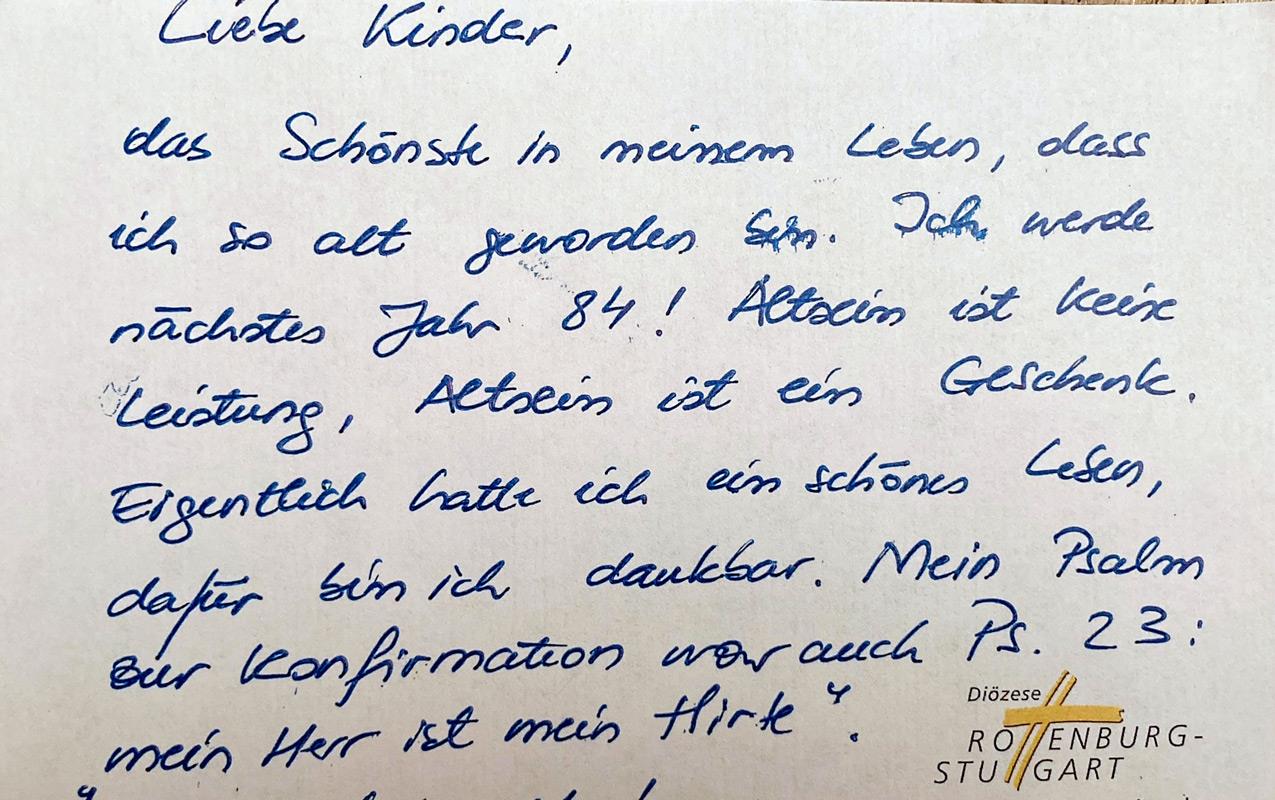 Liebe Kinder,
das Schönste in meinem Leben, dass
ich so alt geworden bin. Ich werde
nächstes Jahr 84! Altsein ist keine
Leistung, Altsein ist ein Geschenk.
Eigentlich hatte ich ein schönes Leben,
dafür bin ich dankbar. Mein Psalm
zur Konfirmation war auch Ps. 23:
mein Herr ist mein Hirte".
Diözese
ROTTENBURG-
STUTTGART